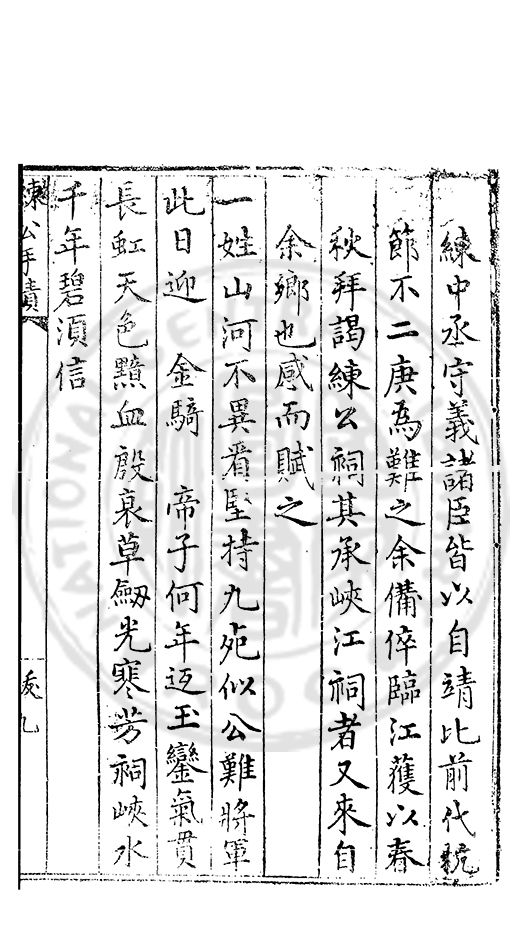 練中丞守義諸臣皆以自靖比前代
節不二庚為難之余備倅臨江獲以春
秋拜謁練公祠其承峽江祠者又來自
余鄉也感而賦之
一姓山河不異看堅持九死似公難將軍
此日迎 金騎 帝子何年返玉鑾氣貫
長虹天色黯血殷衰草劒光寒芳祠峽水
千年碧須信
練公手蹟
後九